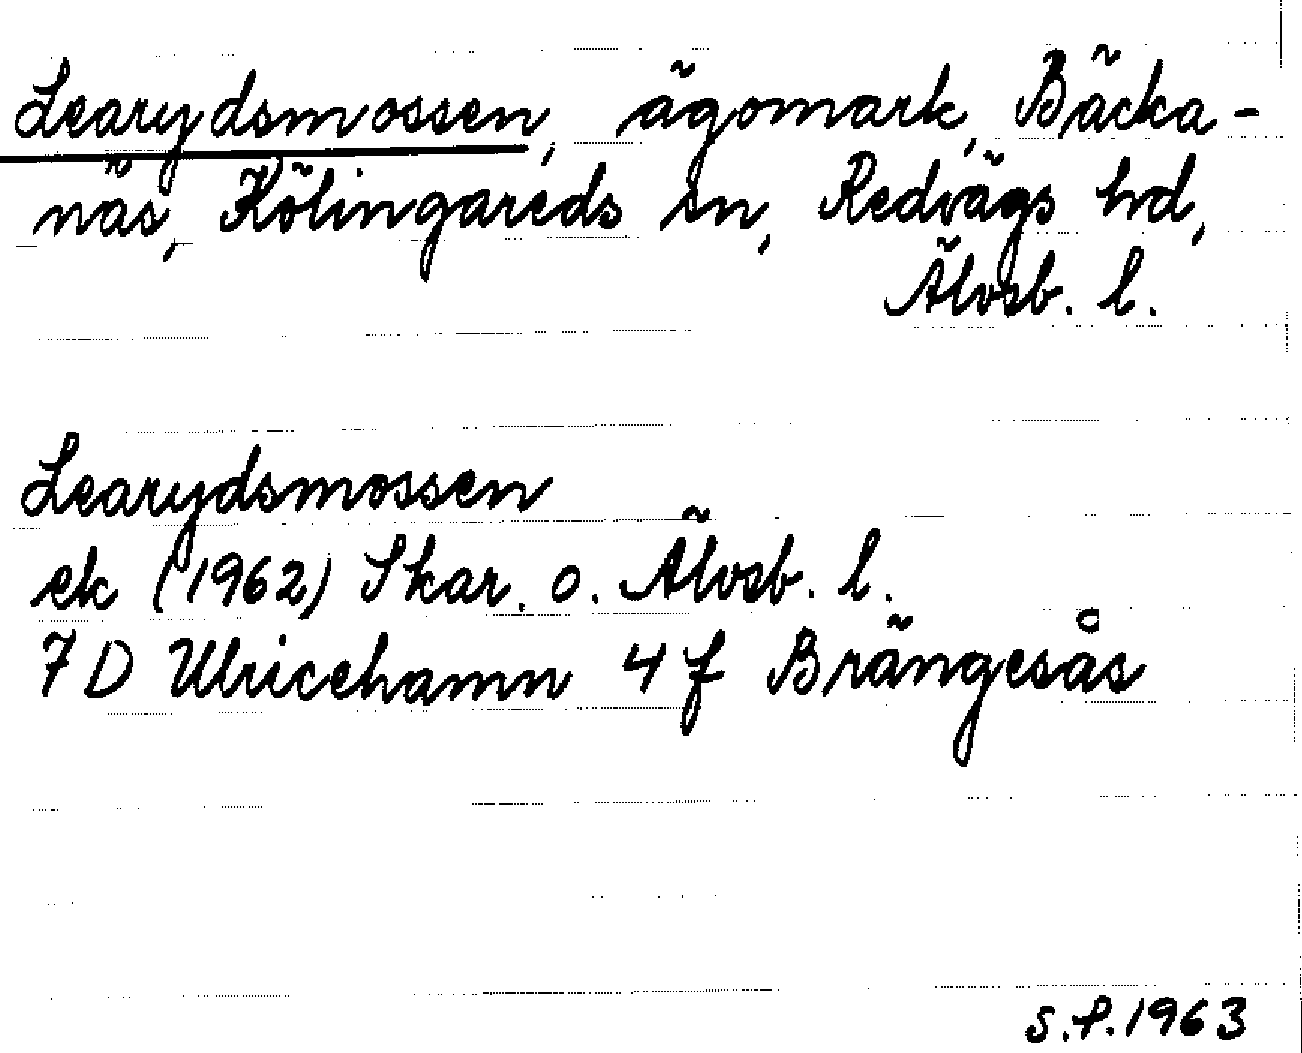 Learydsmossen, ägomark, Bäcka-
näs, Kölingareds sn, Redvägs hd,
Älvsb. l.
Learydsmossen
ek (1962) Skar. o. Älvsb. l.
7 D Ulricehamn 4 f Brängesås
S.P. 1963